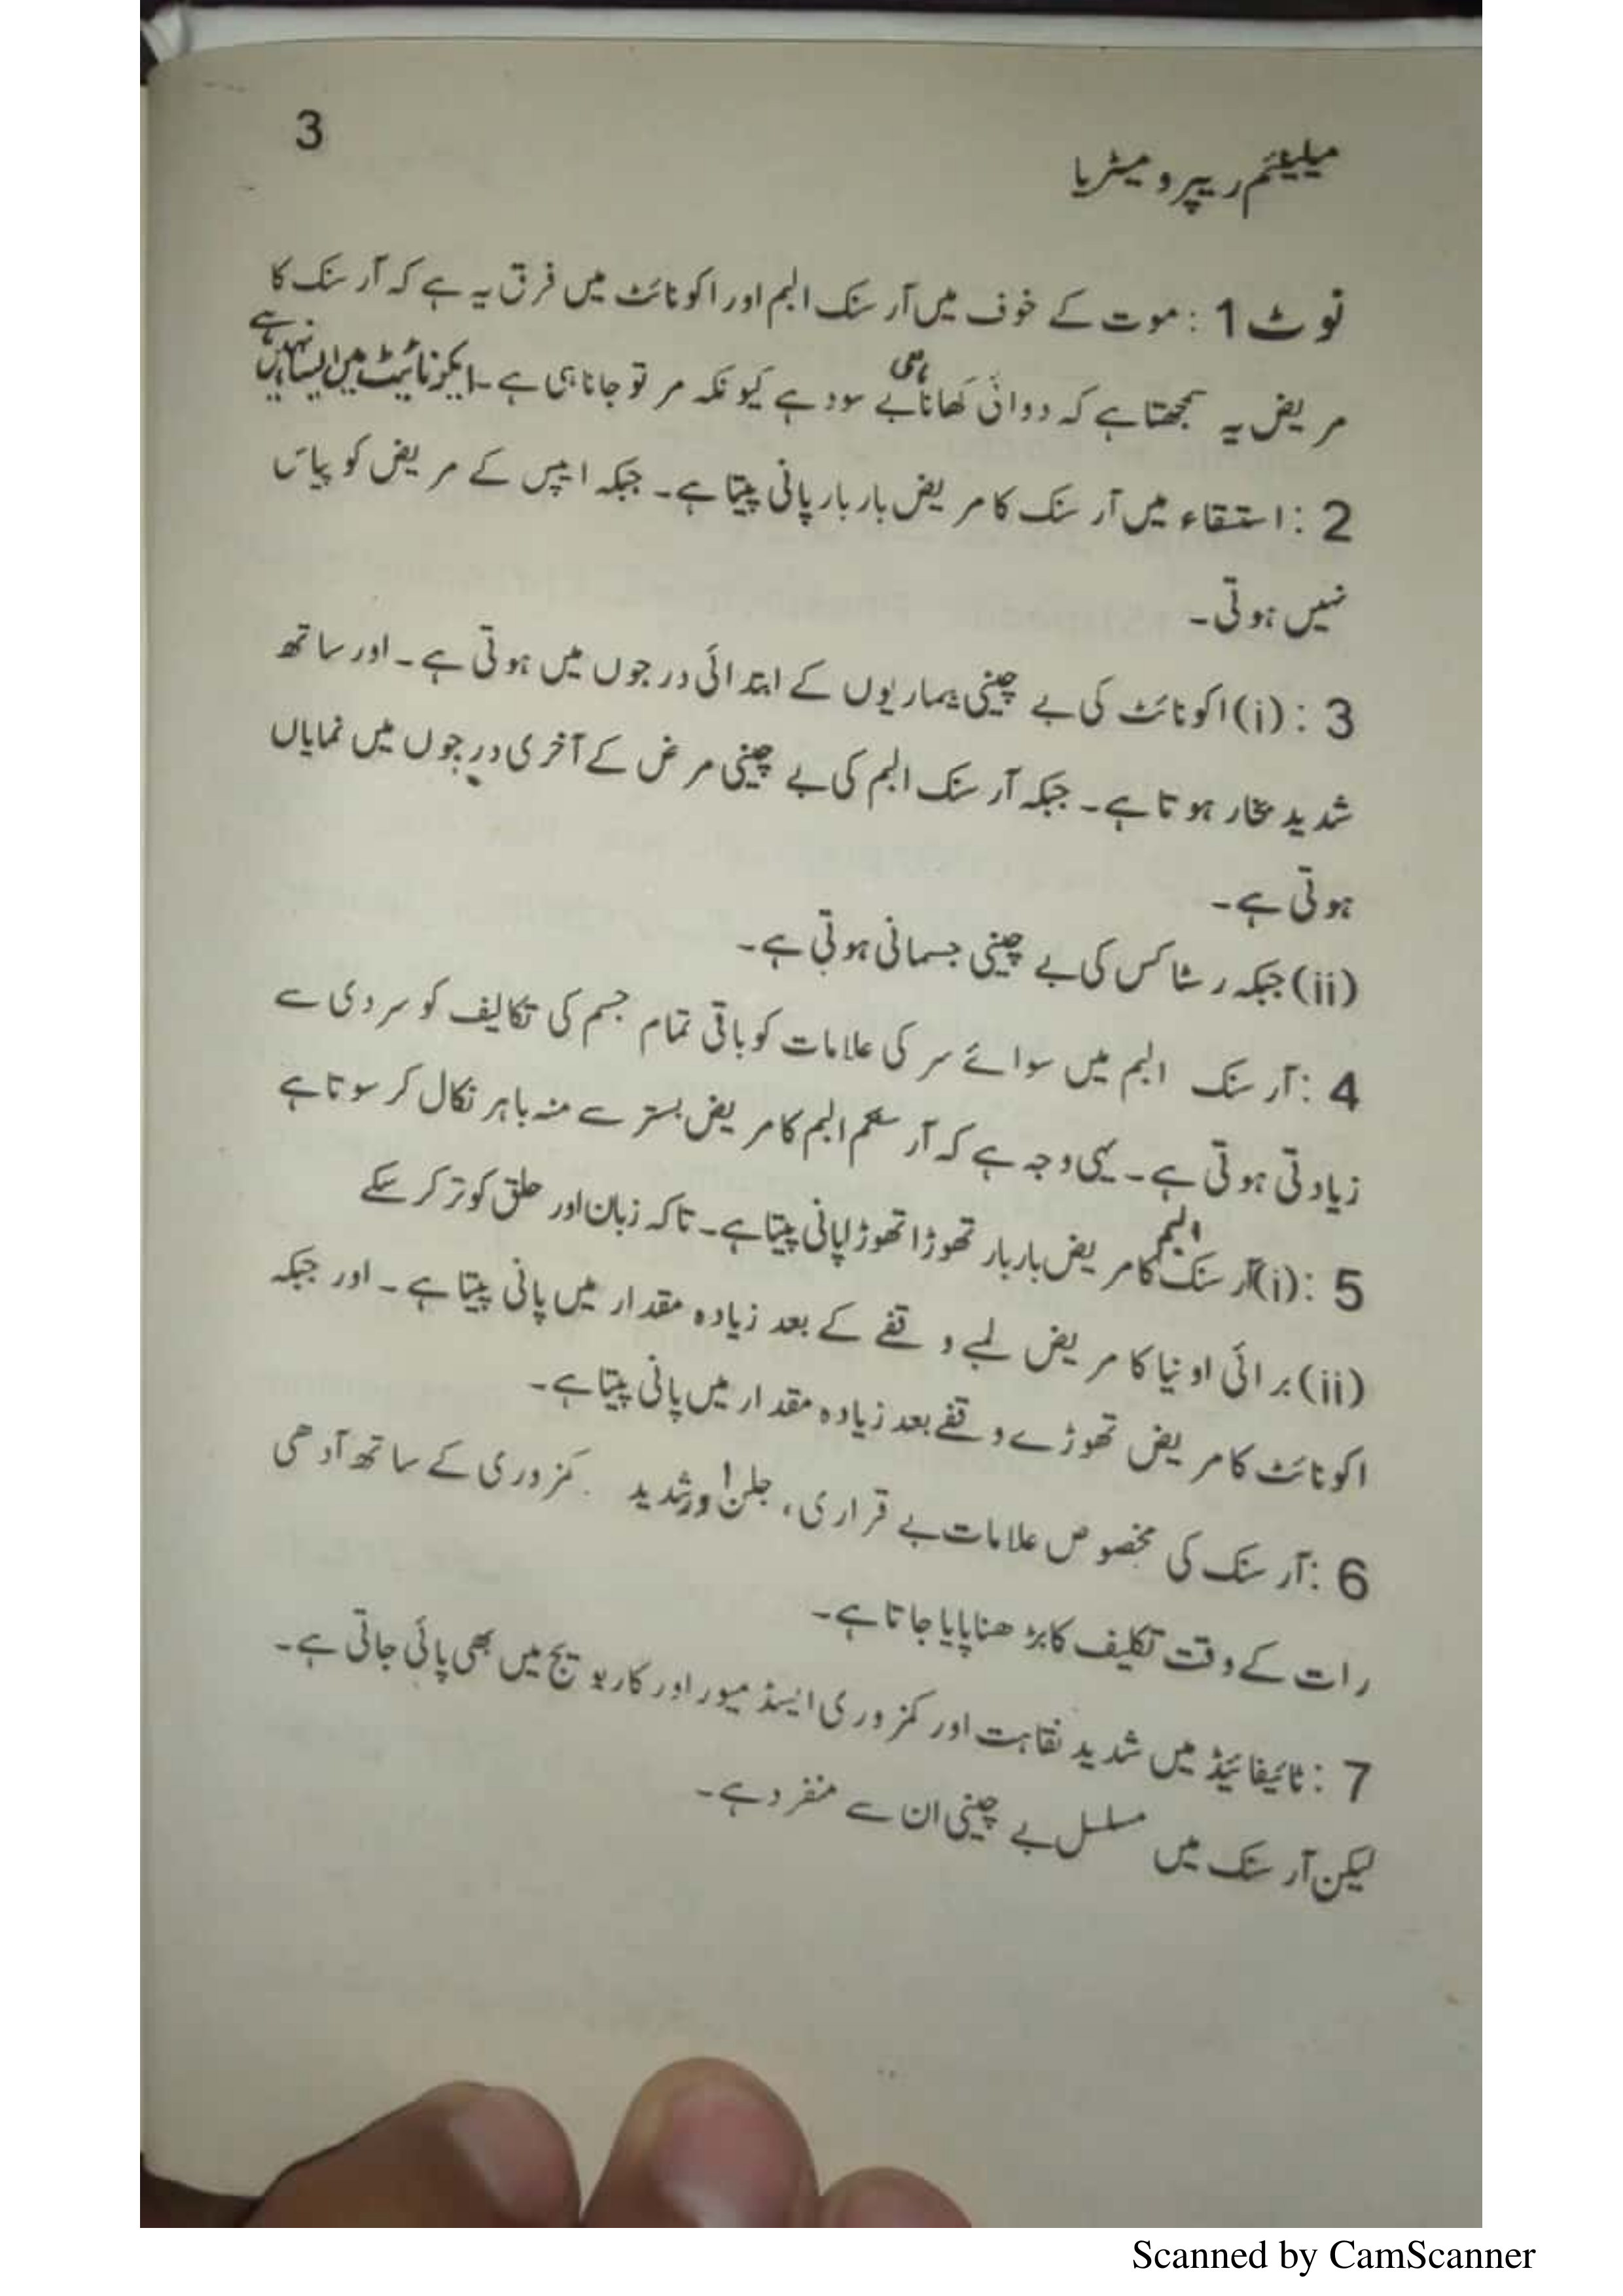 3
میلینئم ریپرو میٹریا
نوٹ 1 : موت کے خوف میں آرسنک البم اور اکونائٹ میں فرق یہ ہے کہ آرسنک کا
مریض یہ سمجھتا ہے کہ دوائی کھانا ہی بے سود ہے کیونکہ مر تو جانا ہی ہے۔ ایکونائیٹ میں ایسا نہیں ہے
2 : استسقاء میں آرسنک کا مریض بار بار پانی پیتا ہے۔ جبکہ ایپس کے مریض کو پیاس
نہیں ہوتی۔
3 : (i) اکونائٹ کی بے چینی بیماریوں کے ابتدائی درجوں میں ہوتی ہے۔ اور ساتھ
شدید بخار ہوتا ہے۔ جبکہ آرسنک البم کی بے چینی مرض کے آخری درجوں میں نمایاں
ہوتی ہے۔
(ii) جبکہ رشاکس کی بے چینی جسمانی ہوتی ہے۔
4 : آرسنک البم میں سوائے سر کی علامات کو باقی تمام جسم کی تکالیف کو سردی سے
زیادتی ہوتی ہے۔ یہی وجہ ہے کہ آرسنکم البم کا مریض بستر سے منہ باہر نکال کر سوتا ہے
5 : (i) آرسنک البم کا مریض بار بار تھوڑا تھوڑا پانی پیتا ہے۔ تاکہ زبان اور حلق کو تر کر سکے
(ii) برائی اونیا کا مریض لمبے وقفے کے بعد زیادہ مقدار میں پانی پیتا ہے۔ اور جبکہ
اکونائٹ کا مریض تھوڑے وقفے بعد زیادہ مقدار میں پانی پیتا ہے۔
6 : آرسنک کی مخصوص علامات بے قراری، جلن اور شدید کمزوری کے ساتھ آدھی
رات کے وقت تکلیف کا بڑھنا پایا جاتا ہے۔
7 : ٹائیفائیڈ میں شدید نقاہت اور کمزوری ایسڈ میور اور کاربو ویج میں بھی پائی جاتی ہے۔
لیکن آرسنک میں مسلسل بے چینی ان سے منفرد ہے۔
Scanned by CamScanner